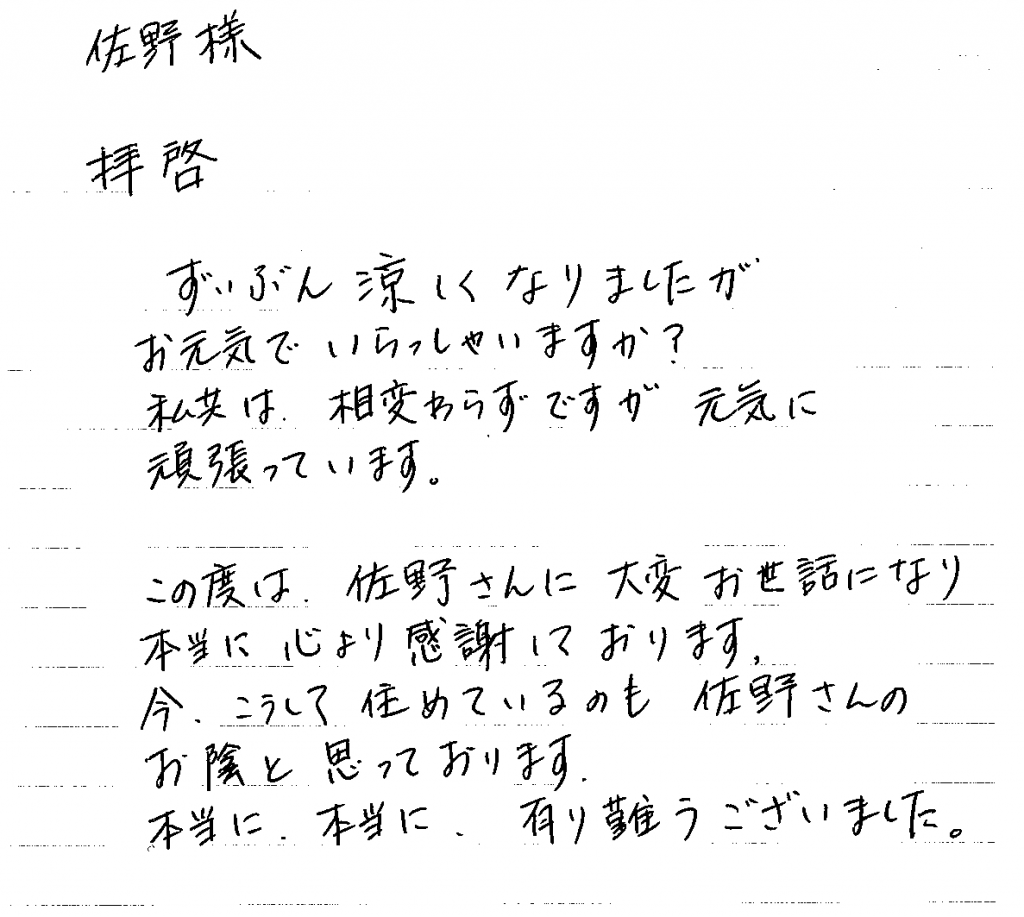 佐野様
拝啓
ずいぶん涼しくなりましたが
お元気でいらっしゃいますか?
私共は、相変わらずですが元気に
頑張っています。
この度は、佐野さんに大変お世話になり
本当に心より感謝しております。
今、こうして住めているのも佐野さんの
お陰と思っております。
本当に、本当に、有り難うございました。